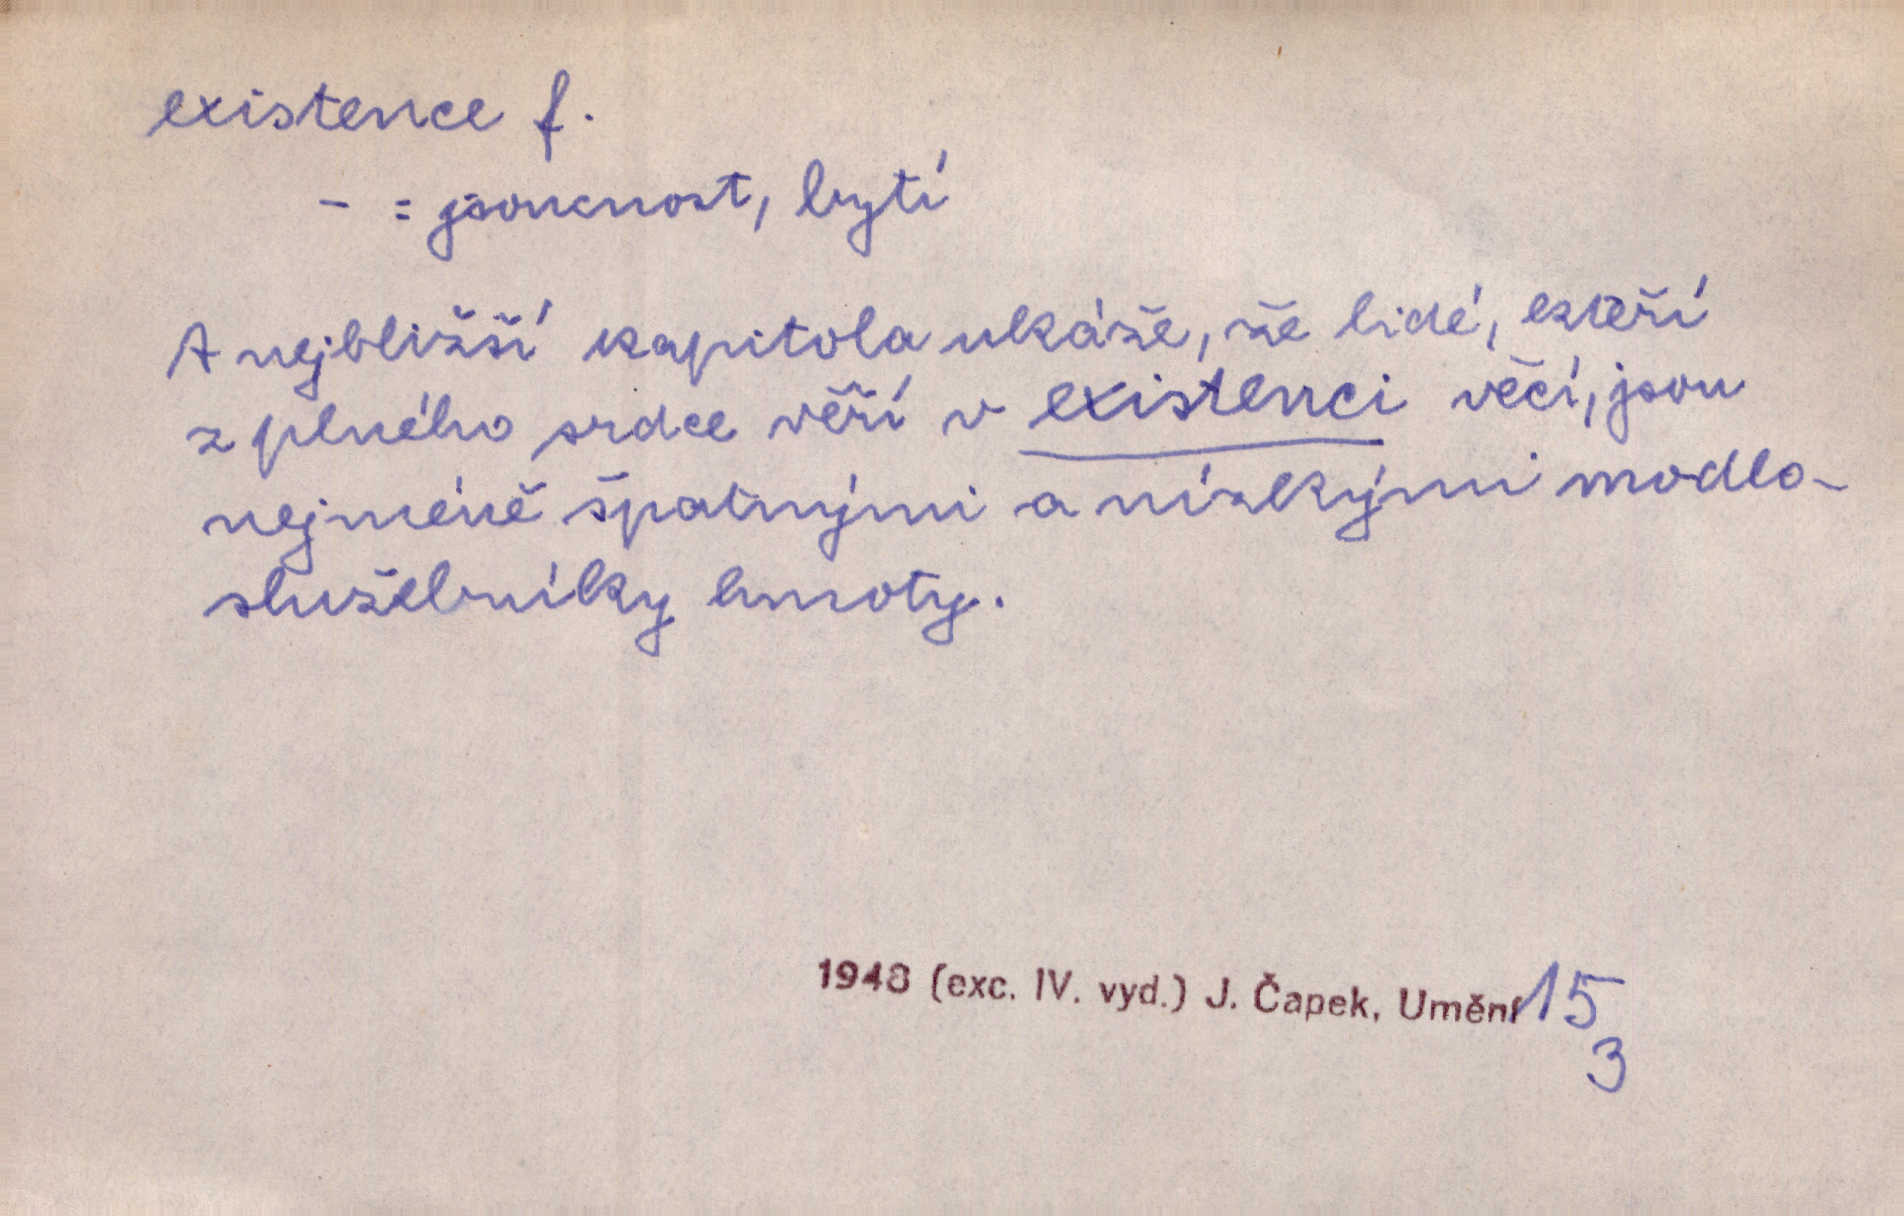 existence f.
- = jsoucnost, bytí
A nejbližší kapitola ukáže, že lidé, kteří
z plného srdce věří v existenci věcí, jsou
nejméně špatnými a nízkými modlo-
služebníky hmoty.
1948 (exc. IV. vyd.) J. Čapek, Umění 15
3